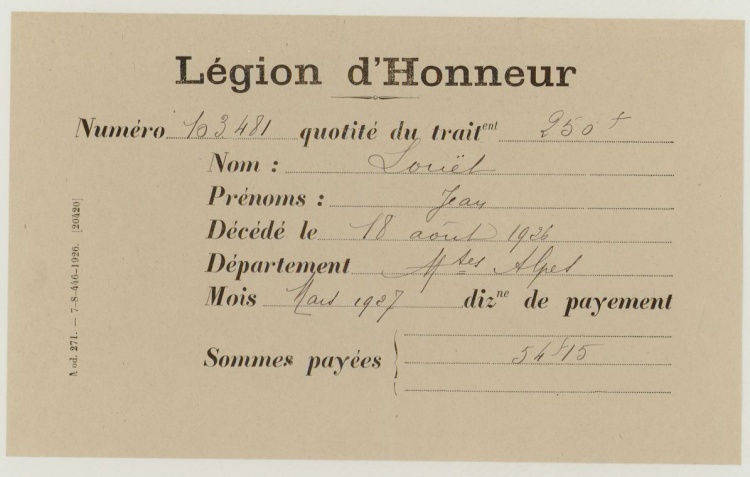 Légion d'Honneur
Numéro 103.481 quotité du trait^ent 250 f
Nom : Louët
Prénoms : Jean
Décédé le 18 août 1926
Département Htes Alpes
Mois Mars 1927 diz^ne de payement
Sommes payées 54 f 15
Mod. 271. — 7-8-446-1926. [20420]